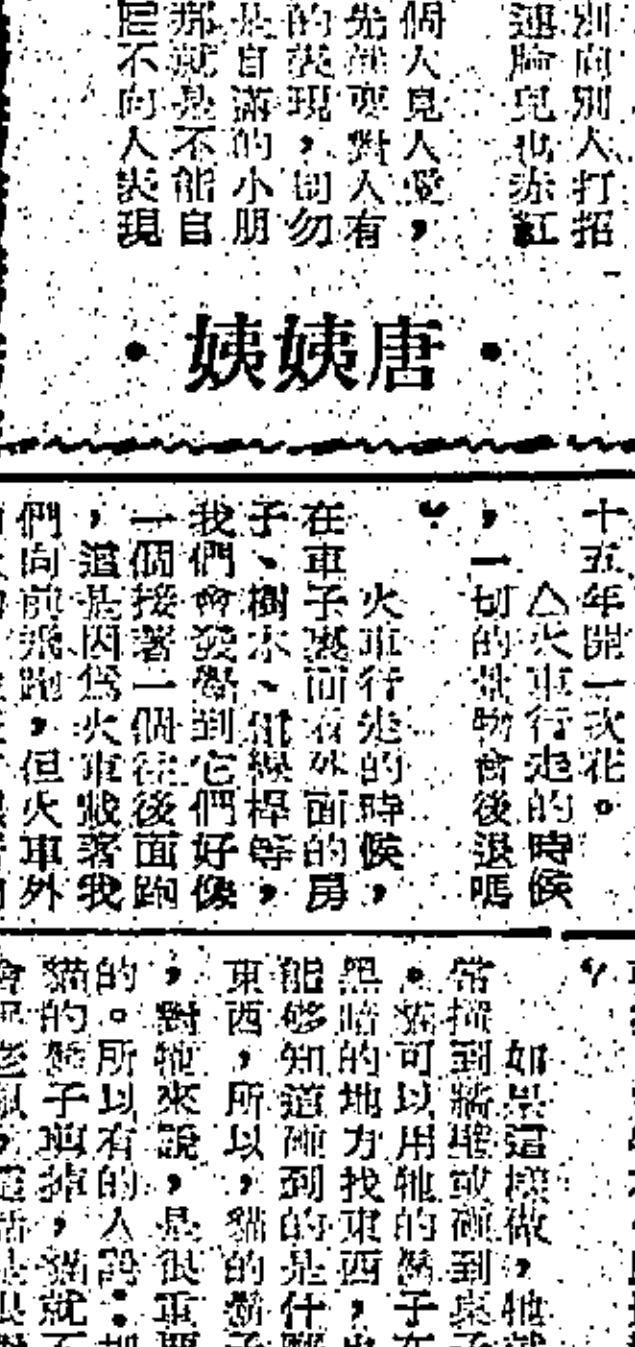 別向別人打招
連臉兒也赤紅
個人見人愛，
先能要對人有
的表現，切勿
是自滿的小朋
那就是不能自
不向人表現
・唐姨姨・
十五年開一次花。
△火車行走的時候
，一切的景物會後退嗎
？
火車行走的時候，
在車子裏面看外面的房
子、樹木、電線桿等，
我們會發覺到它們好像
一個接著一個往後面跑
，這是因為火車載著我
們向前飛跑，但火車外
如果這樣做，牠就
常撞到牆壁或碰到桌子
。貓可以用牠的鬍子在
黑暗的地方找東西，也
能夠知道碰到的是什麼
東西，所以，貓的鬍子
，對牠來說，是很重要
的。所以有的人說：把
貓的鬍子剪掉，貓就不
會捉老鼠，這話是很對